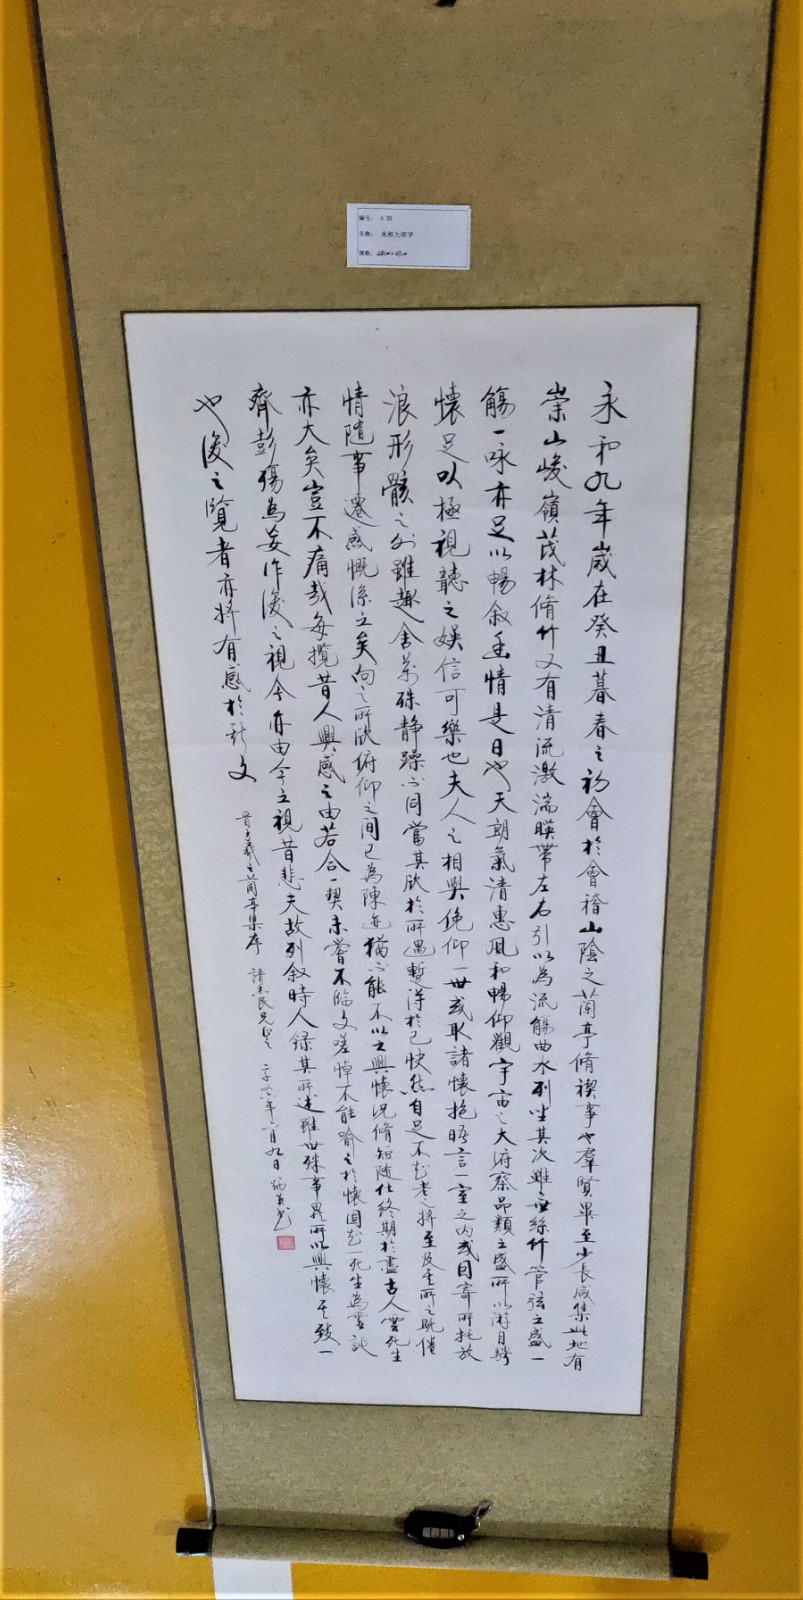 编号：
名称： 永和九年字
规格：
永和九年歲在癸丑暮春之初會於會稽山陰之蘭亭脩禊事也羣賢畢至少長咸集此地有
崇山峻嶺茂林脩竹又有清流激湍暎帶左右引以為流觴曲水列坐其次雖無絲竹管弦之盛一
觴一咏亦足以暢敘幽情是日也天朗氣清惠風和暢仰觀宇宙之大府察品類之盛所以游目騁
懷足以極視聽之娛信可樂也夫人之相與俛仰一世或取諸懷抱晤言一室之內或因寄所托放
浪形骸之外雖趣舍萬殊静躁不同當其欣於所遇暫得於己快然自足不知老之將至及其所之既倦
情隨事遷感慨係之矣向之所欣俯仰之間已為陳迹猶不能不以之興懷況脩短隨化終期於盡古人雲死生
亦大矣豈不痛哉每攬昔人興感之由若合一契未嘗不臨文嗟悼不能喻之於懷固知一死生為虛誕
齊彭殤為妄作後之視今亦由今之視昔悲夫故列敘時人録其所述雖世殊事異所以興懷其致一
也後之覽者亦將有感於斯文
晉王羲之蘭亭集序